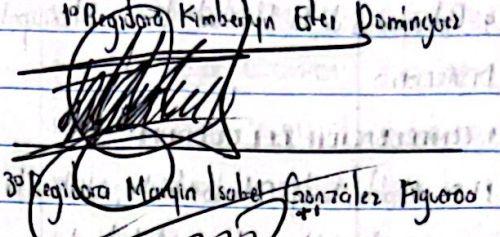 1º Regidora Kimberlyn Ester Dominguez
3º Regidora Maryin Isabel González Figueroa